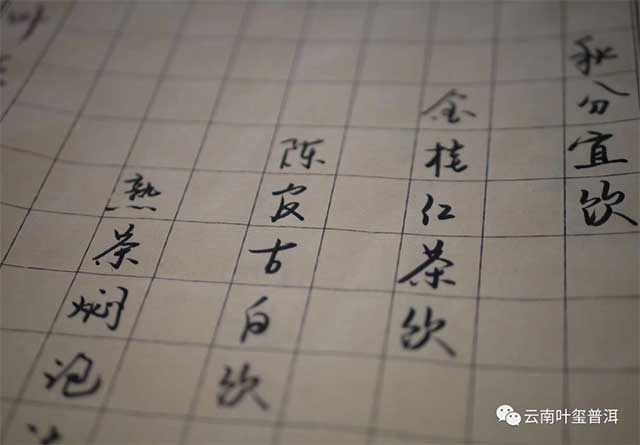 秋分宜饮
金桂红茶饮
陈皮古白饮
熟茶焖泡
云南叶玺普洱